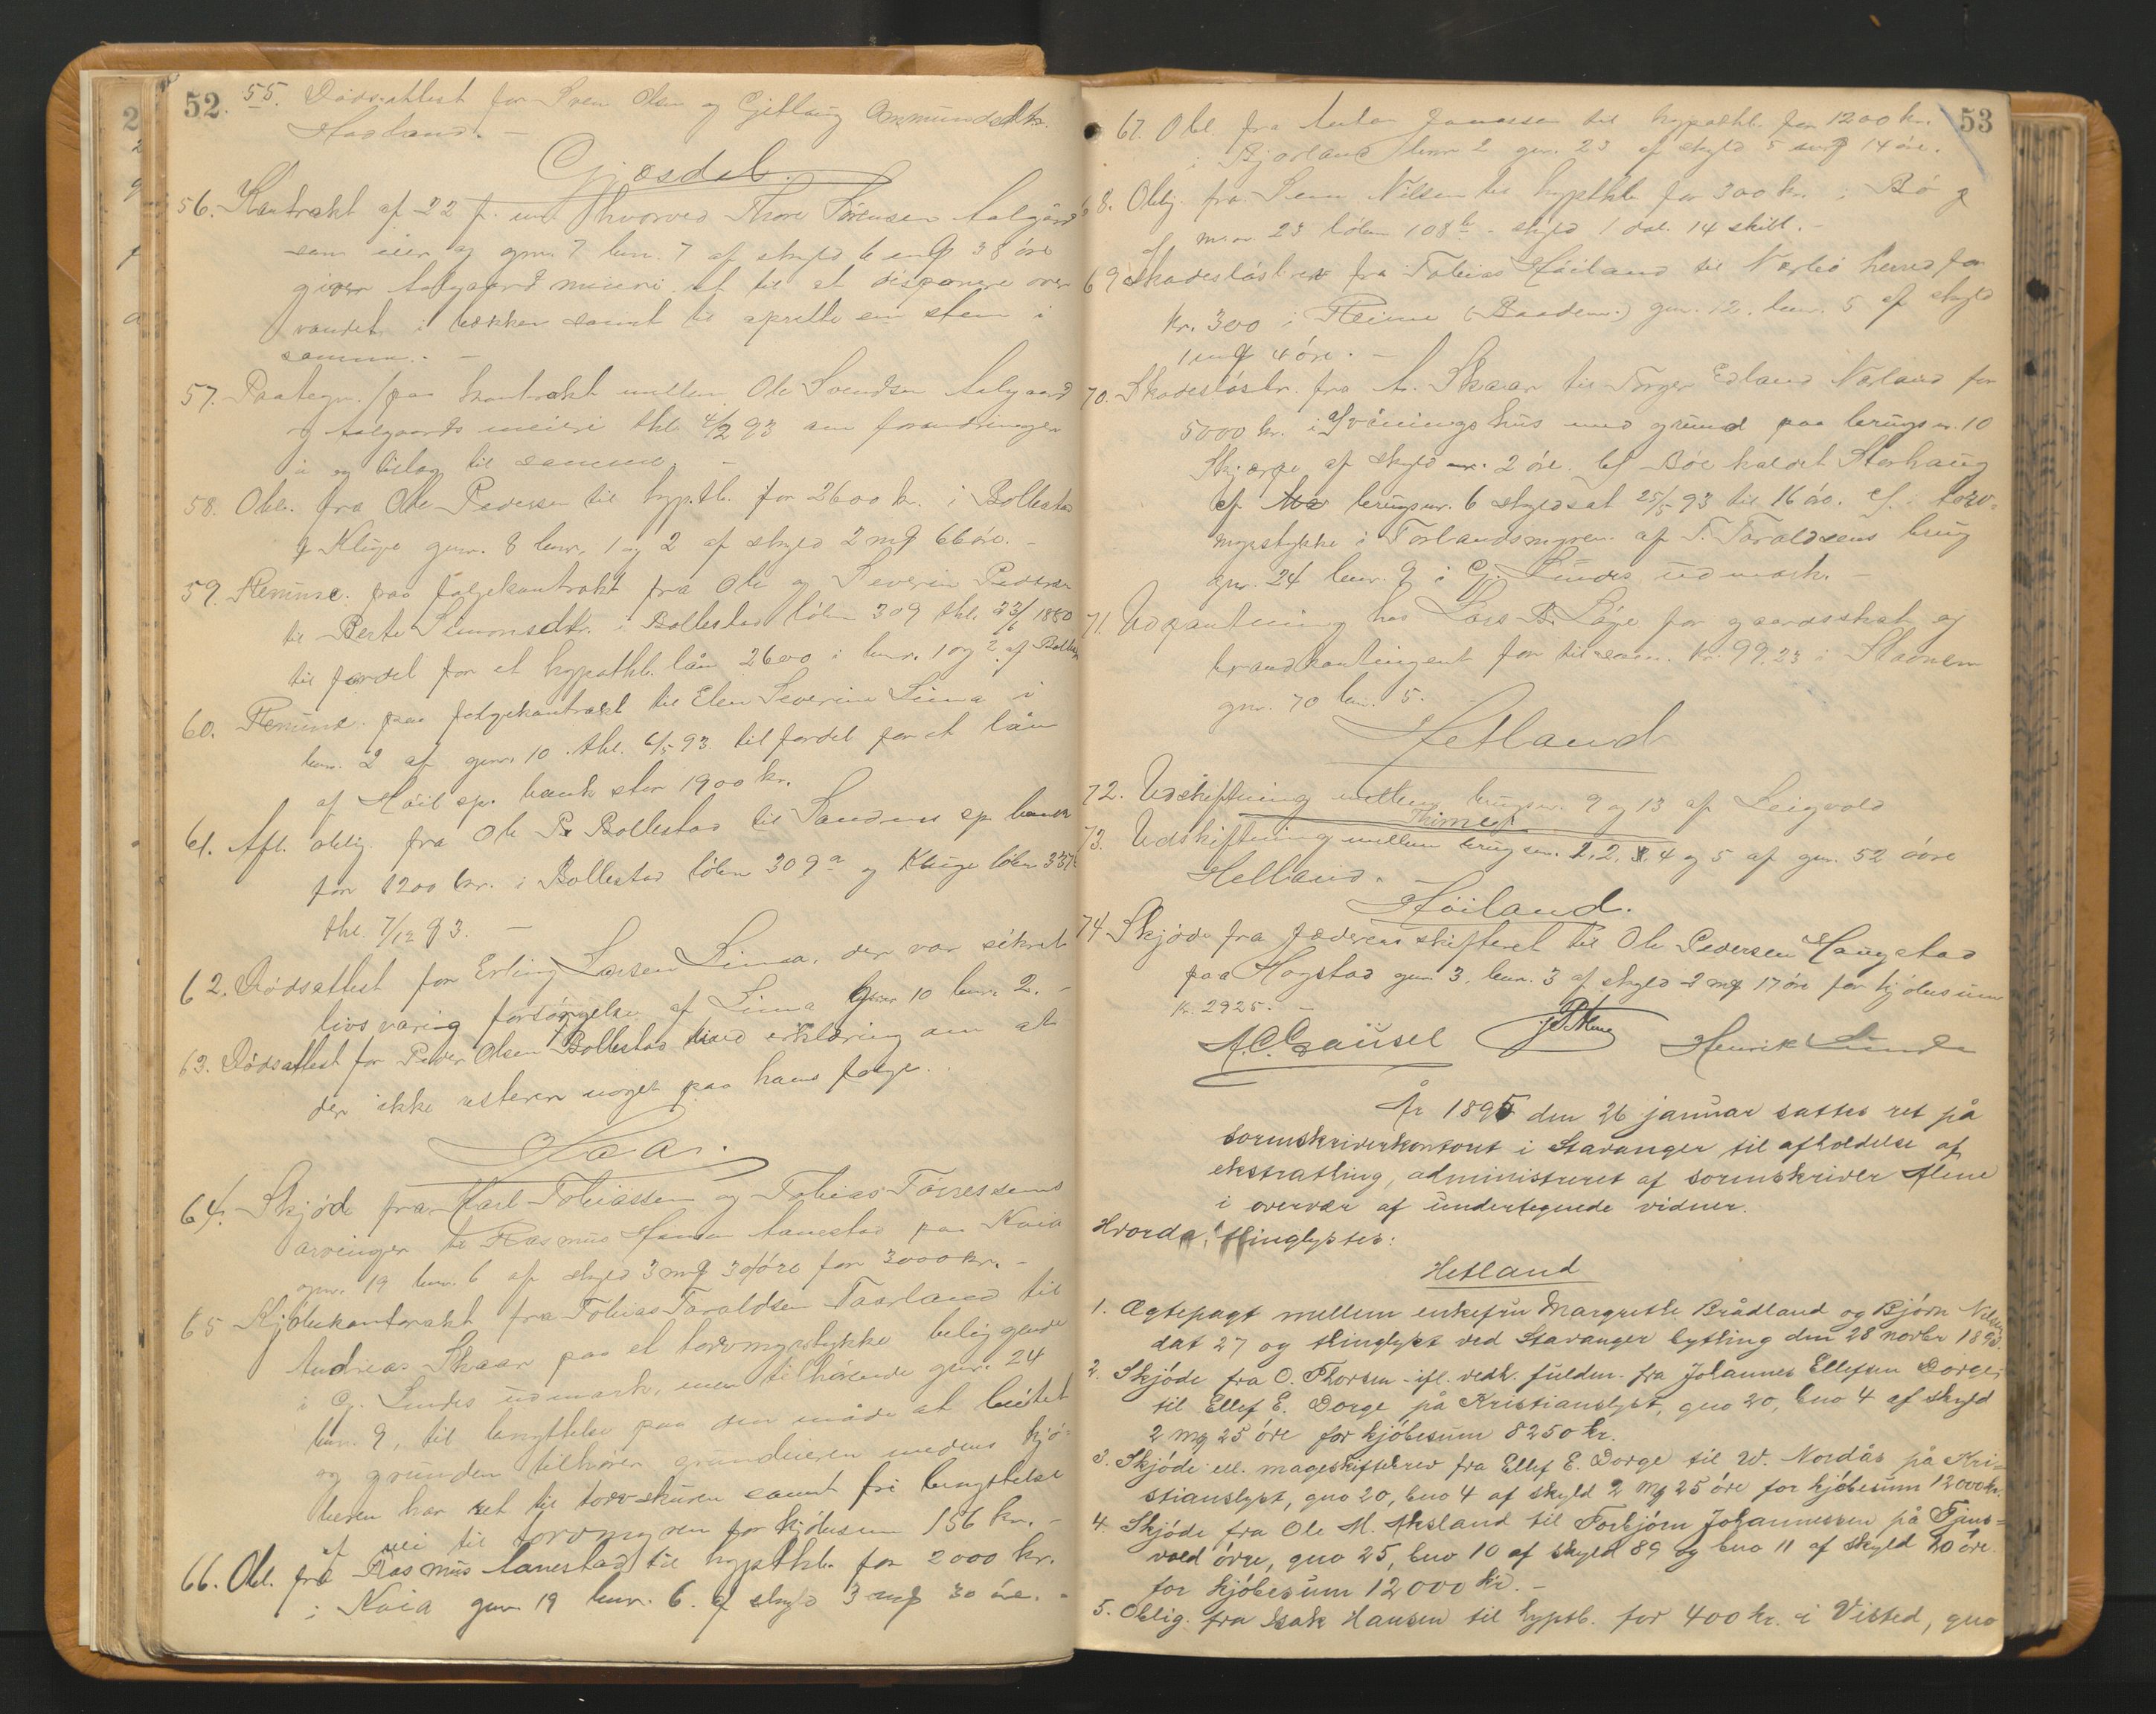 52.
55. Dødsattest for Sven Olsen og Gjetlaug Ammundsdtr.
Haaland. –
Gjesdal.
56. Kontrakt af 22 f. md. hvorved Thore Sørensen Aalgård
som eier og gnr. 7 bnr. 7 af skyld 6 mrk 38 øre
giver Aalgaard meieri ret til at disponere over
vandet i bækken samt til oprette en stem i
samme. –
57. Paategn. paa kontrakt mellem Ole Svendsen Aalgaard
og Aalgaards meieri thl. 4/2 93 om forandringer
i og tillæg til samme. –
58. Obl. fra Ole Pedersen til hypthb. for 2600 kr. i Bollestad
og Kluge gnr. 8 bnr. 1 og 2 af skyld 2 mrk 66 øre. –
59. Renunc. paa følgekontrakt fra Ole og Severin Pedersen
til Berte Simonsdtr. i Bollestad løbn 309 thl. 23/6 1880
til fordel for et hypothb. lån 2600 i bnr. 1 og 2 af Bollestad
60. Renunc. paa følgekontrakt til Elen Severine Lima i
bnr. 2 af gnr. 10. thl. 6/5 93. til fordel for et lån
af Høil sp. bank stor 1900 kr.
61. Afl. oblig. fra Ole P. Bollestad til Sandnes sp. bank
for 1200 kr. i Bollestad løbn 309 a og Kluge løbn
thl. 7/12 93. –
62. Dødsattest for Erling Larsen Lima, der var sikret
livsvarig forsørgelse af Lima gnr 10 bnr. 2. –
63. Dødsattest for Peder Olsen Bollestad med erklæring om at
der ikke resterer noget paa hans følge. .
Haa.
64. Skjøde fra Karl Tobiassen og Tobias Tørressens
arvinger til Rasmus Hansen Aanestad paa Kvia
gnr. 19 bnr. 6 af skyld 3 mrk 30 øre for 3000 kr. –
65 Kjøbekontrakt fra Tobias Taraldsen Taarland til
Andreas Skaar paa et torvmyrstykke beliggende
i G. Lindes udmark, men tilhørende gnr. 24
bnr. 9, til benyttelse paa den måde at beitet
og grunden tilhører grundeieren medens kjø-
beren har ret til torvskuren samt fri benyttelse
af vei til torvmyren for kjøbesum 156 kr. –
66. Obl. fra Rasmus Aanestad til hypthb. for 2000 kr.
i Kvia gnr 19 bnr. 6. af skyld 3 mrk 30 øre. –
53
67. Obl. fra Anton Jonassen til hypothb. for 1200 kr.
i Bjorland bnr 2 gnr. 23 af skyld 5 mrk 14 øre.
68. Oblig. fra Sven Nilsen til hypthb. for 300 kr. i Bø g
af mnr. 23 løbn 108 b – skyld 1 dal. 14 skill. –
69 Skadesløsbrev fra Tobias Høiland til Nærbø herred for
kr. 300 i Reime (Baadsm.) gnr. 12. bnr. 5 af skyld
1 mrk 4 øre. –
70. Skadesløsbr. fra A. Skaar til Torger Edland Nærland for
5000 kr. i Våningshus med grund paa brugsnr. 10
Skjærpe af skyld mr. 2 øre. af Bøe kaldet Storhaug
af brugsnr. 6 skyldsat 25/5 93 til 16 øre. af torv-
myrstykke i Torlandsmyren af T. Taraldsens brug
gnr. 24 bnr. 9 i Gj. Lindes udmark. –
71. Udpantning hos Lars B. Løge for gaardsskat og
brandkontingent for tilsam. kr. 99.23 i Stavnem
gnr. 70 bnr. 5. –
Hetland
72. Udskiftning mellem brugsnr. 9 og 13 af Leigvold
Thime.
73. Udskiftning mellem brugsnr. 1, 2, 4 og 5 af gnr. 52 øvre
Helland. –
Høiland.
74. Skjøde fra fædrenesskifteret til Ole Pedersen Haugstad
paa Hogstad gnr. 3. bnr. 3 af skyld 2 mrk 17 øre for kjøbesum
kr. 2925. –
A. C. Gausel Henrik Lunde
År 1895 den 26 januar sattes ret på
sorenskriverkontoret i Stavanger til afholdelse af
ekstrathing, administreret af sorenskriver Alme
i overvær af undertegnede vidner.
Hvorda thinglystes:
Hetland
1. Ægtepagt mellem enkefru Margrethe Brådland og Bjørn Nilsen
dat 27 og thinglyst ved Stavanger bything den 28 novbr 1895.
2. Skjøde fra O. Thorsen – ifl. vedh. fuldm. fra Johannes Ellefsen Dorge,
til Ellef E. Dorge på Kristianslyst, gno 20, bno 4 af skyld
2 mrk 25 øre for kjøbesum 8250 kr.
3. Skjøde ell. mageskiftebrev fra Ellef E. Dorge til W. Nordås på Kri-
stianslyst, gno 20, bno 4 af skyld 2 mrk 25 øre for kjøbesum 12000 kr.
4. Skjøde fra Ole M. Aksland til Torbjørn Johannessen på Tjens-
vold øvre, gno 25, bno 10 af skyld 89 og bno 11 af skyld 20 øre
for kjøbesum 12000 kr. –
5. Oblig. fra Isak Hansen til hyptb. for 400 kr. i Visted, gno